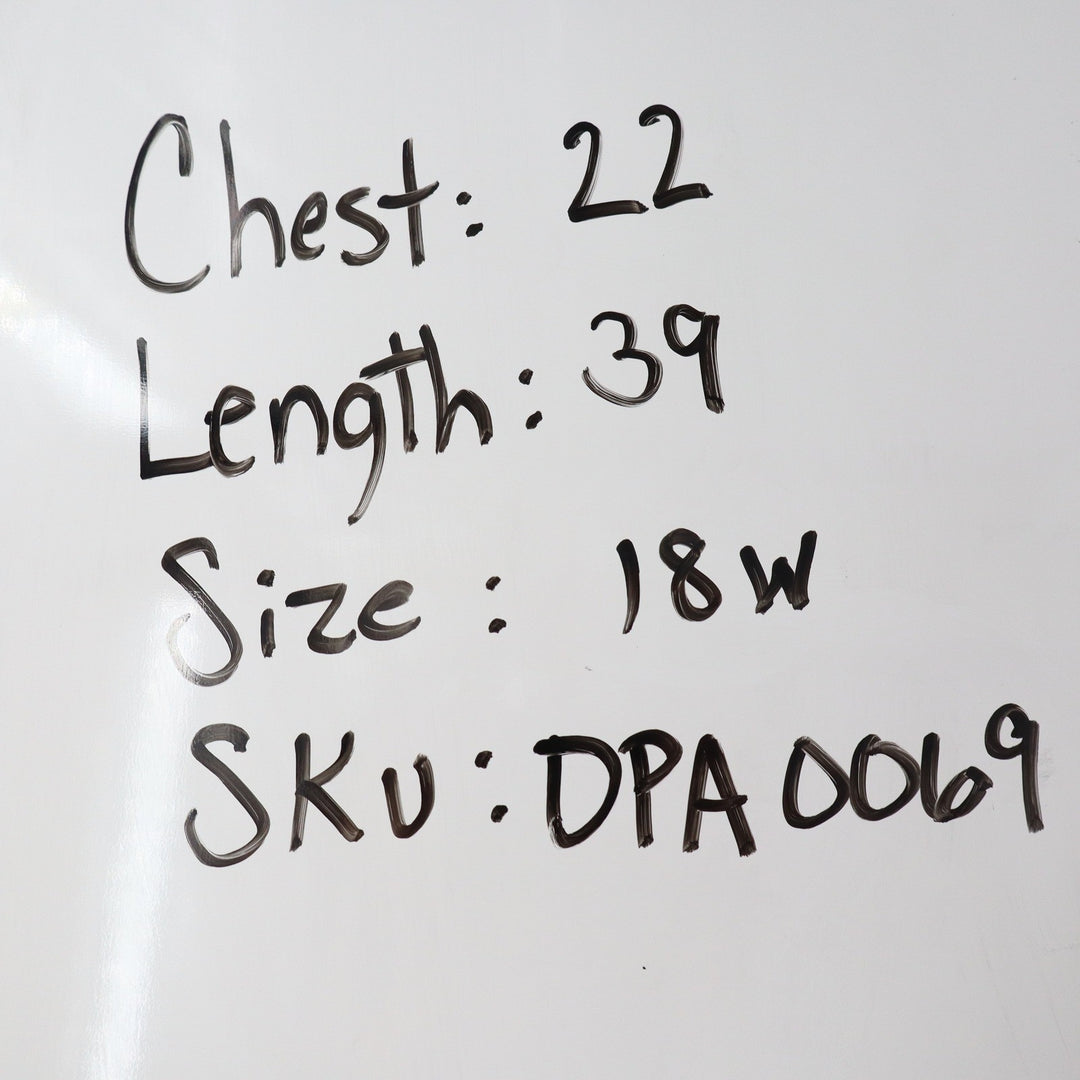 Chest: 22
Length: 39
Size: 18W
SKU: DPA0069